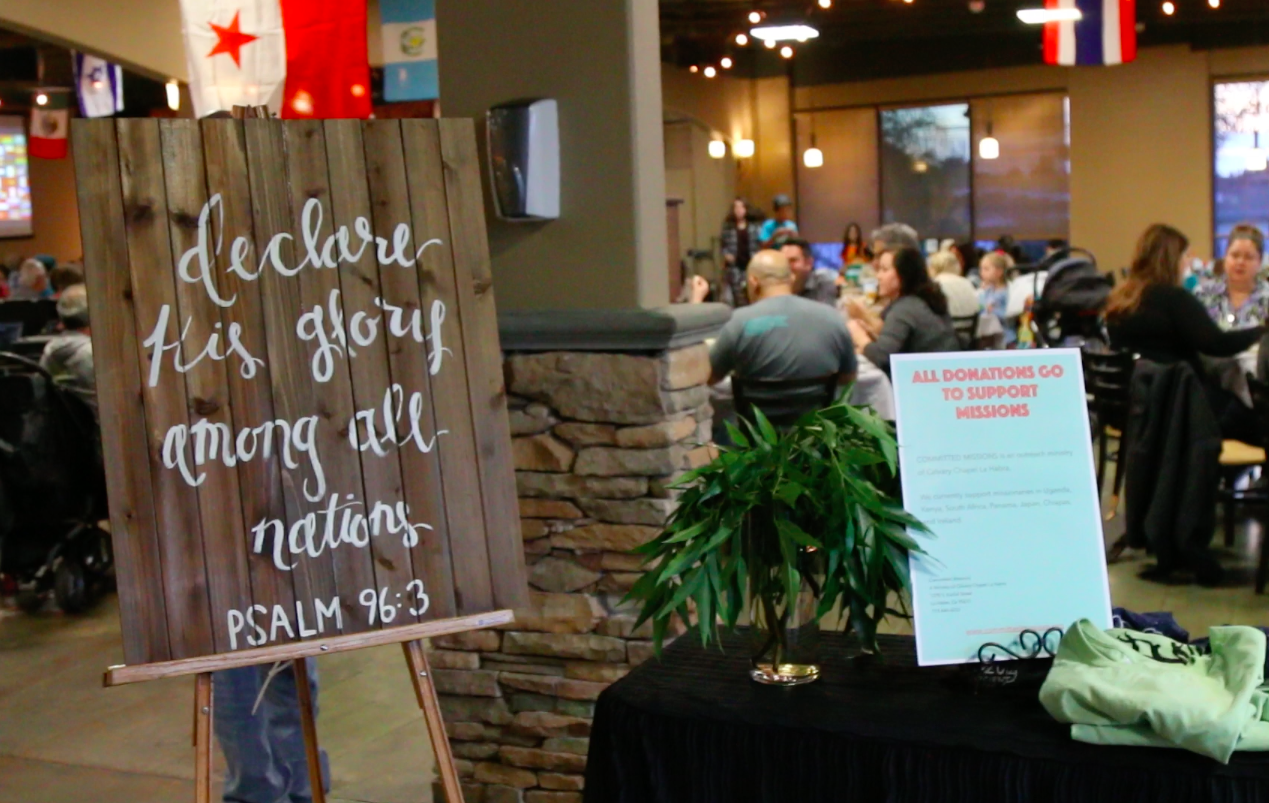 declare
His glory
among all
nations
PSALM 96:3
ALL DONATIONS GO
TO SUPPORT
MISSIONS
COMMITTED MISSIONS is an outreach ministry
of Calvary Chapel La Habra.
We currently support missionaries in Uganda,
Kenya, South Africa, Panama, Japan, Chiapas,
and Ireland